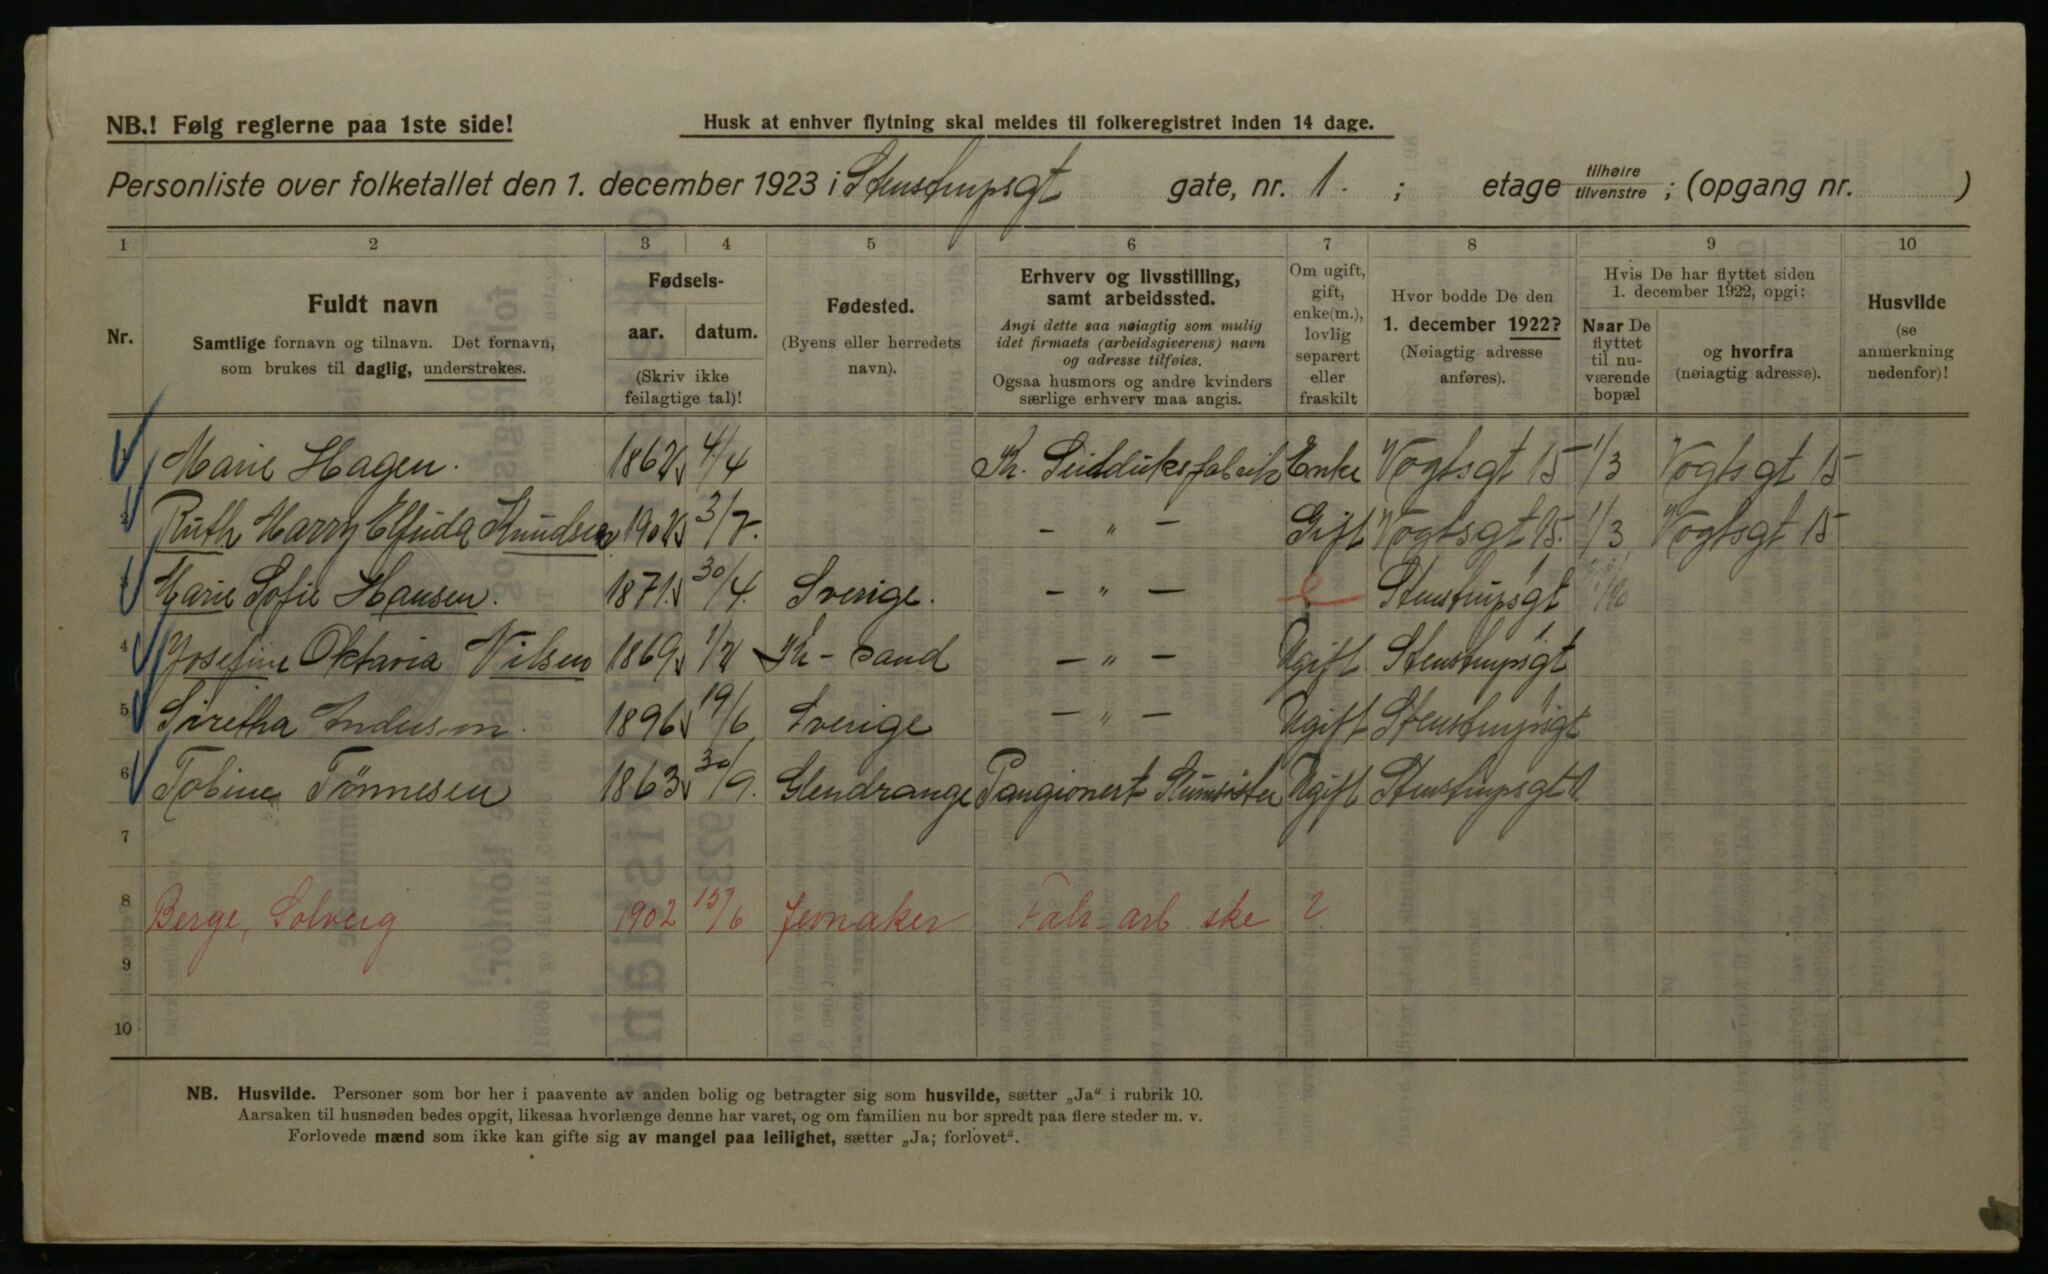 NB.! Følg reglerne paa 1ste side!
Husk at enhver flytning skal meldes til folkeregistret inden 14 dage.
Personliste over folketallet den 1. december 1923 i Stenstrupsgt gate, nr. 1. ; etage tilhøire tilvenstre ; (opgang nr. )
1 2 3 4 5 6 7 8 9 10
Nr.
Fuldt navn
Samtlige fornavn og tilnavn. Det fornavn,
som brukes til daglig, understrekes.
Fødsels-
aar. datum.
(Skriv ikke
feilagtige tal)!
Fødested.
(Byens eller herredets
navn).
Erhverv og livsstilling,
samt arbeidssted.
Angi dette saa nøiagtig som mulig
idet firmaets (arbeidsgiverens) navn
og adresse tilføies.
Ogsaa husmors og andre kvinders
særlige erhverv maa angis.
Om ugift,
gift,
enke(m.),
lovlig
separert
eller
fraskilt
Hvor bodde De den
1. december 1922?
(Nøiagtig adresse
anføres).
Hvis De har flyttet siden
1. december 1922, opgi:
Naar De
flyttet
til nu-
værende
bopæl
og hvorfra
(nøiagtig adresse).
Husvilde
(se
anmerkning
nedenfor)!
1 Marie Hagen. 1862 4/4 Kr. Seilduksfabrik Enke Vogtsgt 15 1/3 Vogtsgt 15
2 Ruth Harry Elfrida Knudsen 1902 3/7. - „ - Gift Vogtsgt 15. 1/3 Vogtsgt 15
3 Marie Sofie Hansen. 1871. 30/4. Sverige. - „ - e Stenstrupsgt 1
4 Josefine Oktavia Nilsen 1869 1/2 Kr-sand - „ - Ugift Stenstrupsgt 1
5 Siretha Anderson. 1896 19/6 Sverige - „ - Ugift Stenstrupsgt 1
6 Tobine Tönnesen 1863 30/9. Glendrange Pangionert Ugift Stenstrupsgt 1.
7
8 Berge, Solveig 1902 15/6 Jevnaker Fabr-arb.ske ?
9
10
NB. Husvilde. Personer som bor her i paavente av anden bolig og betragter sig som husvilde, sætter „Ja“ i rubrik 10.
Aarsaken til husnøden bedes opgit, likesaa hvorlænge denne har varet, og om familien nu bor spredt paa flere steder m. v.
Forlovede mænd som ikke kan gifte sig av mangel paa leilighet, sætter „Ja; forlovet“.